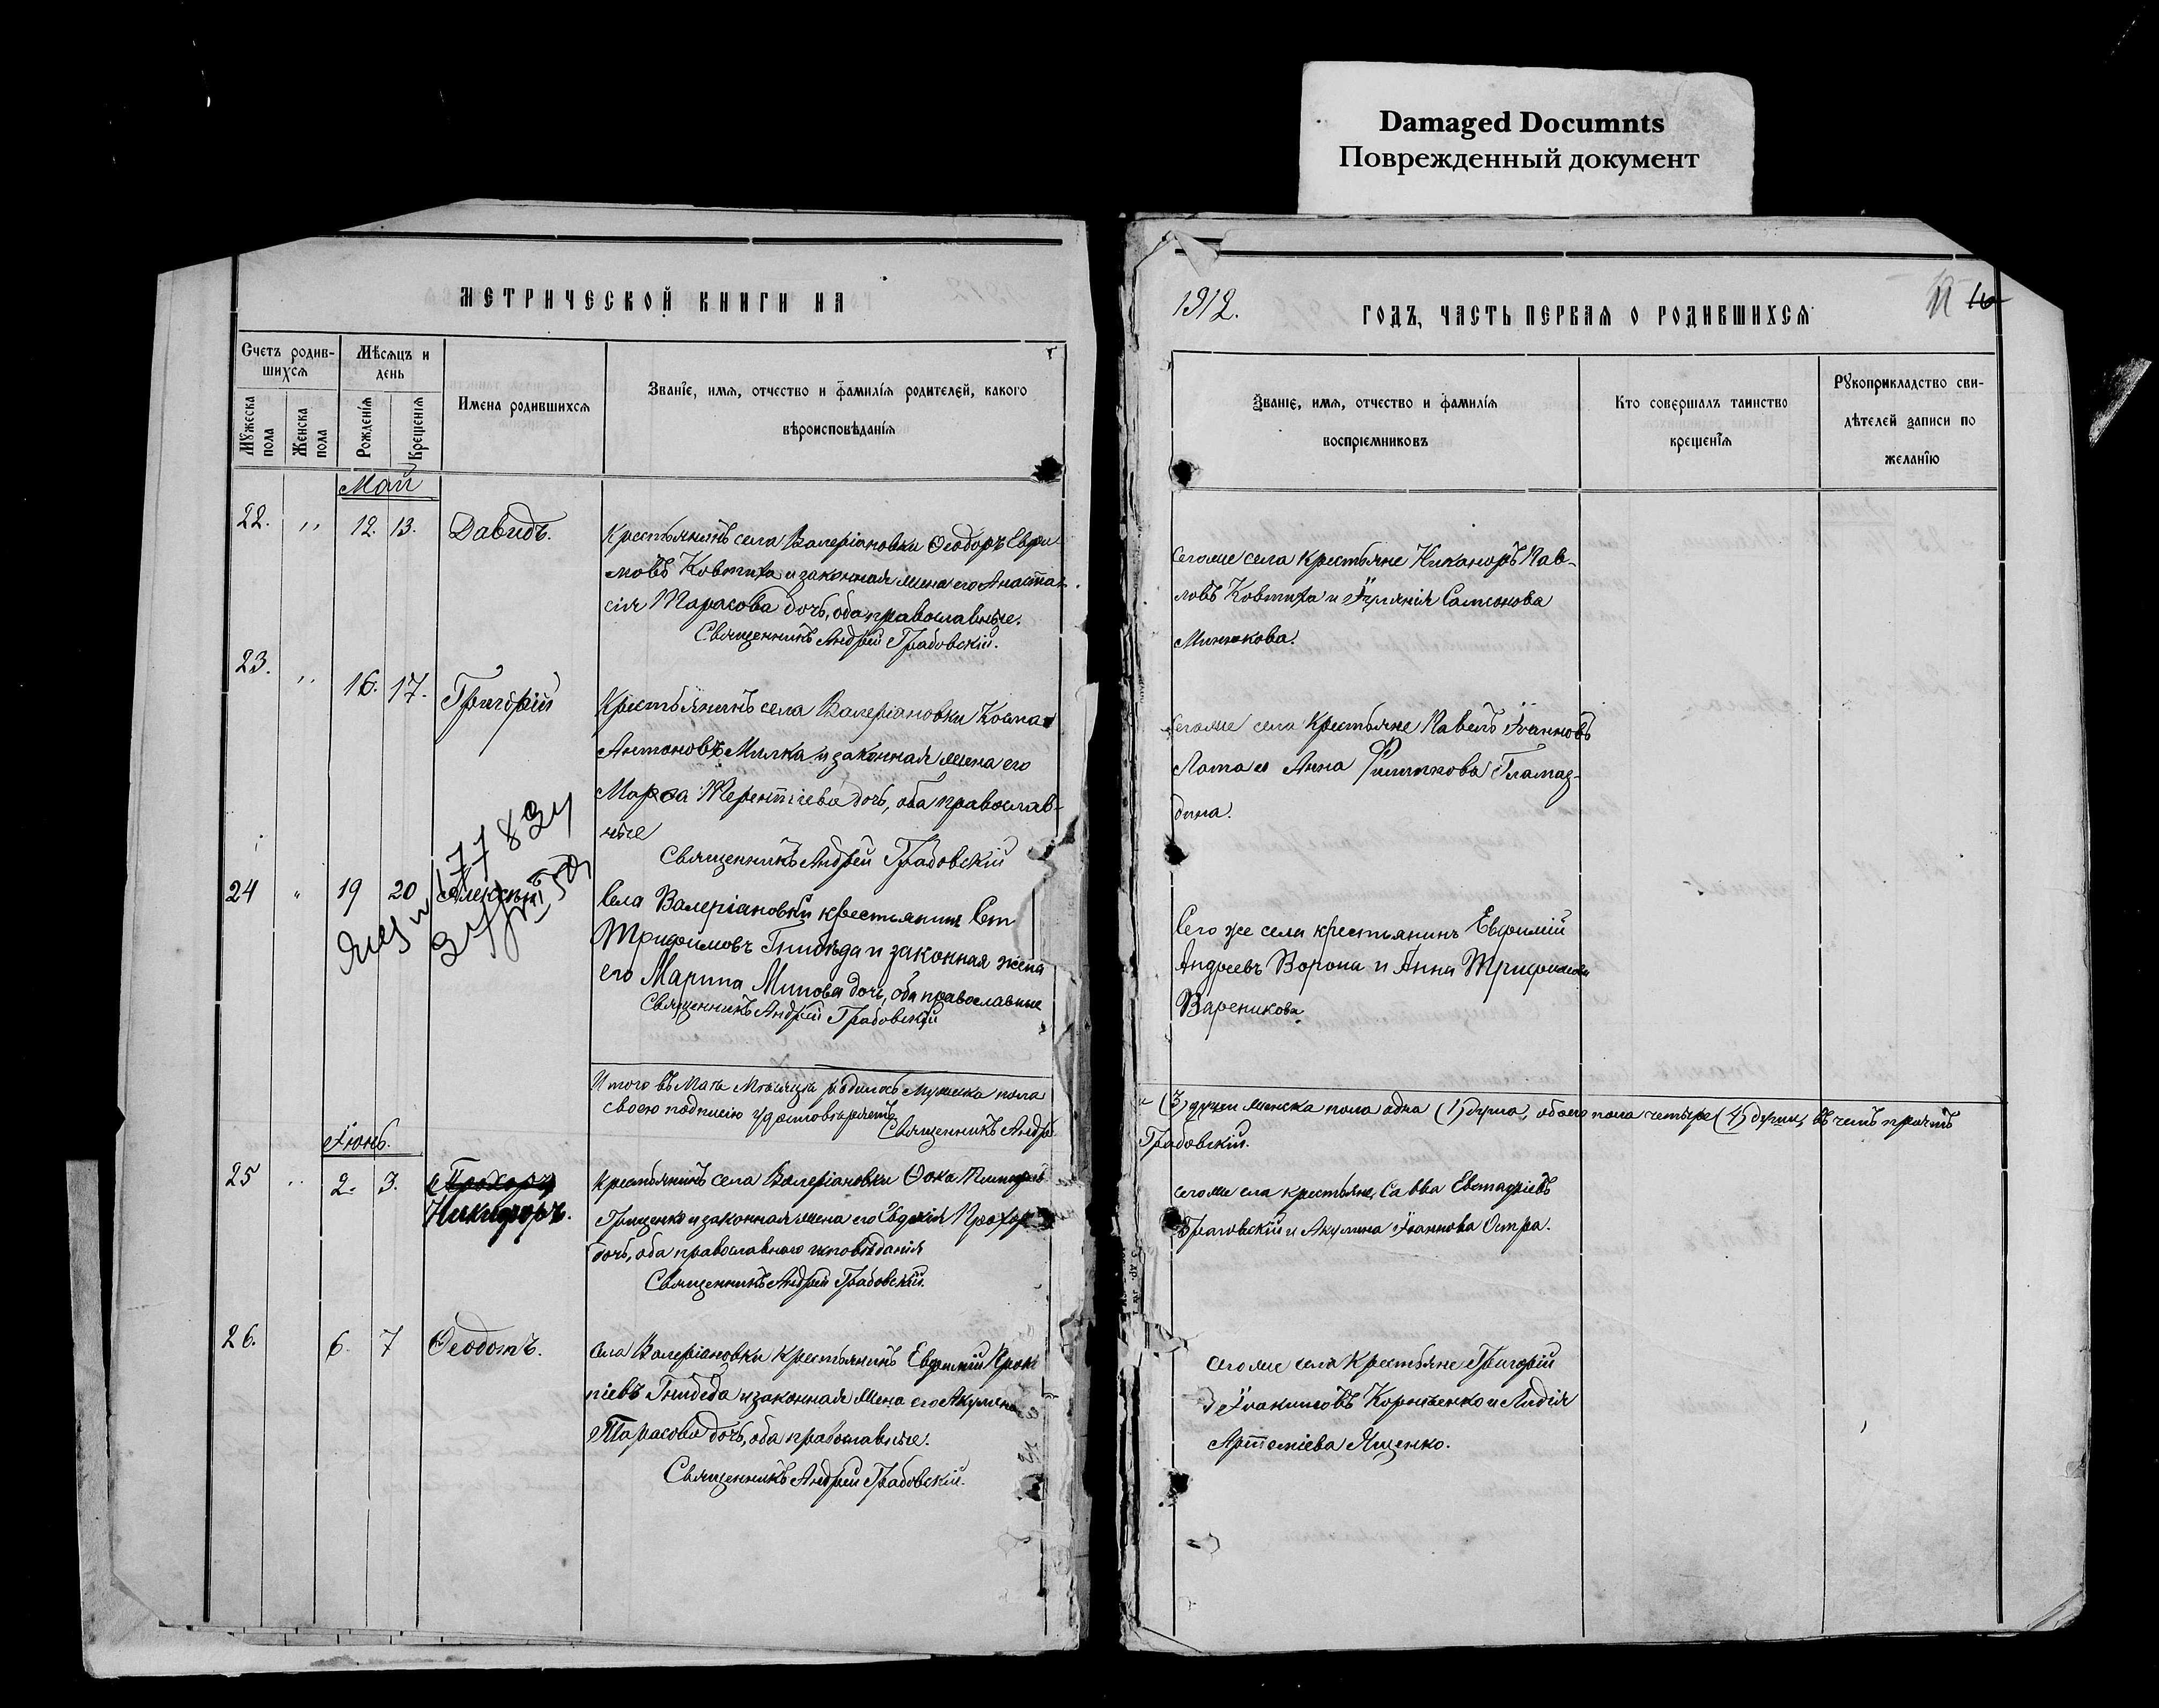 Damaged Documnts
Поврежденный документ
МЕТРИЧЕСКОЙ КНИГИ НА
1912.
ГОДЪ, ЧАСТЬ ПЕРВАЯ О РОДИВШИХСЯ
Счетъ родив-
шихся
Мѣсяцъ и
день
Мужеска
пола
Женска
пола
Рожденія
Крещенія
Имена родившихся
Званіе, имя, отчество и фамилія родителей, какого
вѣроисповѣданія
Званіе, имя, отчество и фамилія
воспріемниковъ
Кто совершалъ таинство
крещенія
Рукоприкладство сви-
дѣтелей записи по
желанію
Май
22. " 12. 13. Давидъ.
Крестьянинъ села Валеріановки Ѳеодоръ Ефи-
мовъ Ковтиха и законная жена его Анаста-
сія Тарасова дочь, оба православные.
Священникъ Андрей Грабовскій.
Сегоже села крестьяне Никаноръ Пав-
ловъ Ковтиха и Іуліанія Самсонова
Минюкова.
23. " 16. 17. Григорій
Крестьянинъ села Валеріановки Косма
Антоновъ Милка и законная жена его
Марѳа Терентіева дочь, оба православ-
ные
Священникъ Андрей Грабовскій
Сегоже села крестьяне Павелъ Іоанновъ
Лата и Анна Филиппова Гламаз-
дина.
24 " 19 20 Алексѣй
Села Валеріановки крестьянинъ
Трифоновъ Гнибѣда и законная жена
его Марина Минова дочь, оба православные
Священникъ Андрей Грабовскій
Сего же села крестьянинъ Евфимій
Андреевъ Ворона и Анна Трифонова
Вареникова
Итого въ Маѣ Мѣсяцѣ родилось мужска пола
своею подписію удостовѣряетъ
Священникъ Андр
(3) души женска пола одна (1) душа, обоего пола четыре (4) души, въ чемъ причтъ
Грабовскій.
Іюнь.
25 " 2. 3. Прохоръ
Никифоръ.
Крестьянинъ села Валеріановки Ѳока
Грищенко и законная жена его Евдокія Прохор
дочь, оба православнаго исповѣданія
Священникъ Андрей Грабовскій.
Сегоже села крестьяне Савва Евстафіевъ
Граковскій и Акулина Іоаннова Остра.
26. 6. 7 Ѳеодотъ.
Села Валеріановки крестьянинъ Евфимій Прок
піевъ Гнибѣда и законная жена его Акулина
Тарасова дочь, оба православные.
Священникъ Андрей Грабовскій.
Сегоже села крестьяне Григорій
Іоакимовъ Корніенко и Лидія
Артеміева Ященко.